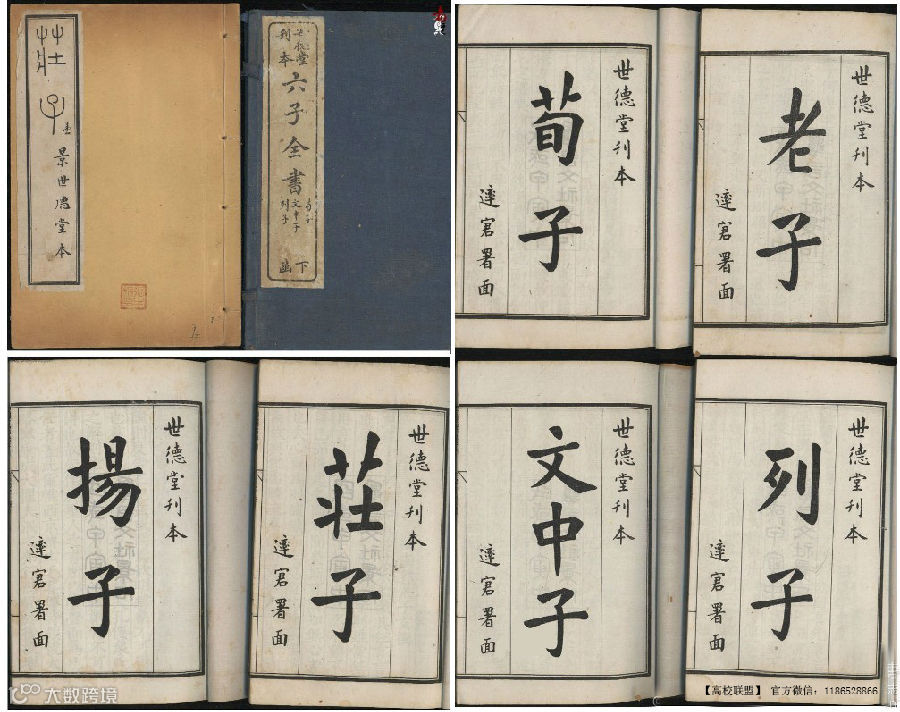 莊子
景世德堂本
世德堂
刊本
六子全書
文中子
列子
下
函
世德堂刊本
荀子
達窘署面
世德堂刊本
老子
達窘署面
世德堂刊本
揚子
達窘署面
世德堂刊本
莊子
達窘署面
世德堂刊本
文中子
達窘署面
世德堂刊本
列子
達窘署面
大数跨境
【高校联盟】 官方微信：1186528866